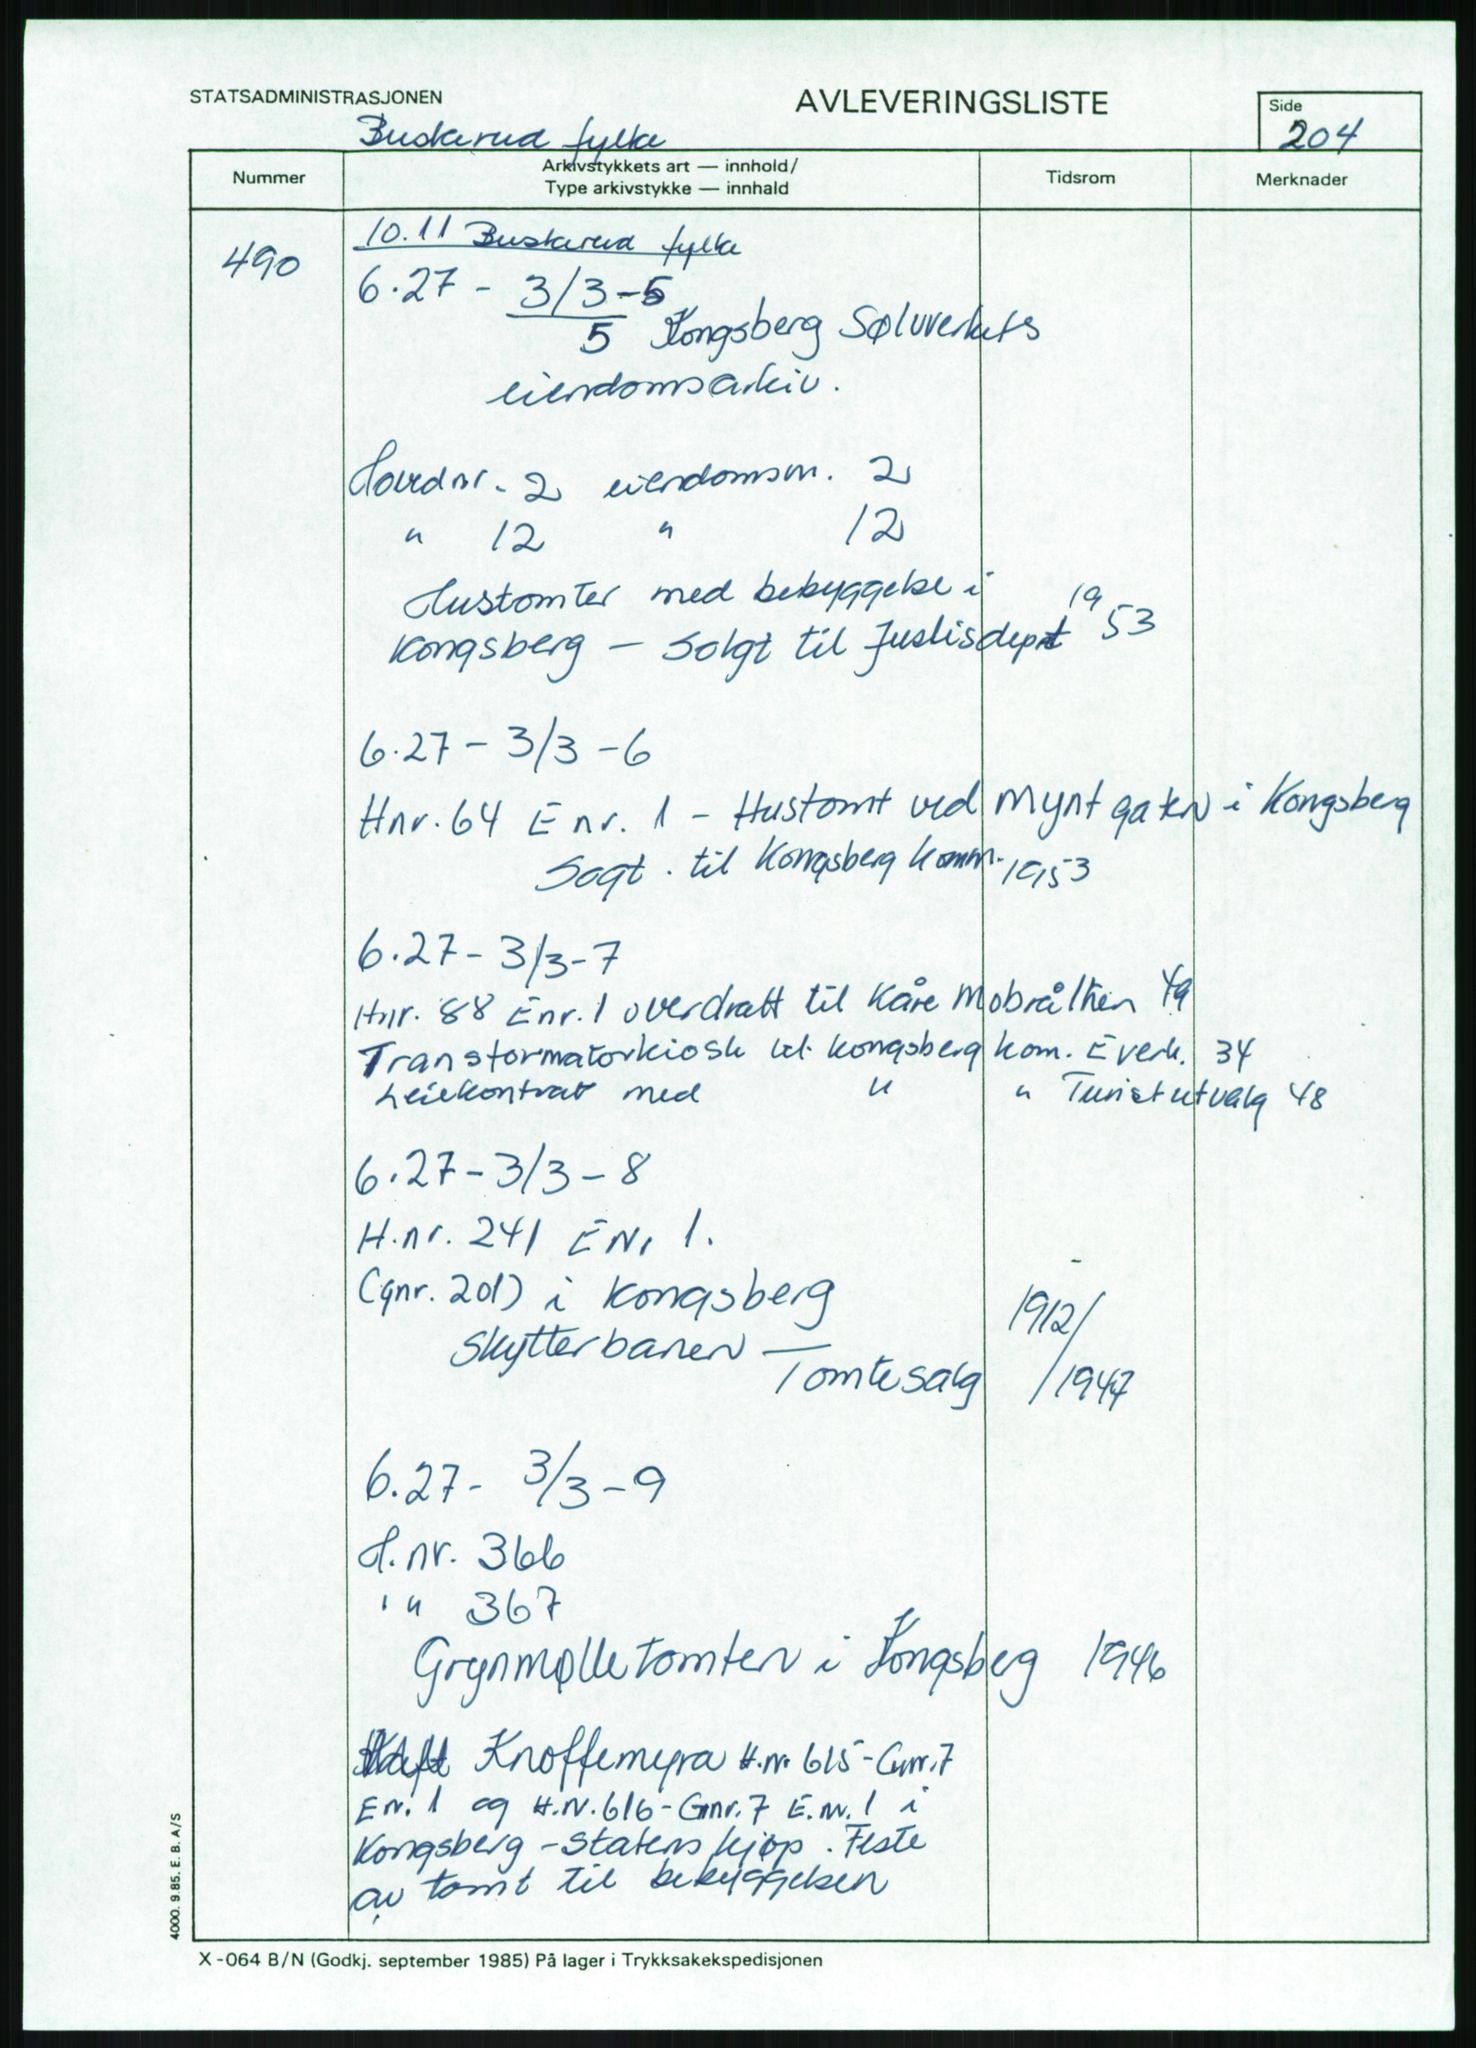 STATSADMINISTRASJONEN
AVLEVERINGSLISTE
Side
204
Buskerud fylke
Nummer
Arkivstykkets art — innhold/
Type arkivstykke — innhald
Tidsrom
Merknader
490
10.11 Buskerud fylke
6.27 - 3/3-5
5 Kongsberg Sølvverkets
eiendomsarkiv.
Hovednr. 2 eiendomsnr. 2
" 12 " 12
Hustomter med bebyggelse i
Kongsberg — Solgt til Justisdept 1953
6.27 - 3/3 - 6
Hnr. 64 E nr. 1 - Hustomt ved Myntgaten i Kongsberg
Sogt. til Kongsberg komm. 1953
6.27 - 3/3 - 7
Hnr. 88 Enr. 1 overdratt til Kåre Mobråthen 49
Transformatorkiosk til Kongsberg kom. Everk. 34
Leiekontrakt med " " Turistutvalg 48
6.27 - 3/3 - 8
H.nr. 241 ENr 1.
(gnr. 201) i Kongsberg
Skytterbanen — Tomtesalg
1912/
/1947
6.27 - 3/3 - 9
H.nr. 366
" " 367
Grynmølletomten i Kongsberg 1946
Knoffemyra H.nr. 615 - Gnr. 7
Enr. 1 og H.Nr. 616 - Gnr. 7 E.nr. 1 i
Kongsberg - Statens kjøp. Feste
av tomt til bebyggelsen
4000. 9.85. E. B. A/S
X-064 B/N (Godkj. september 1985) På lager i Trykksakekspedisjonen